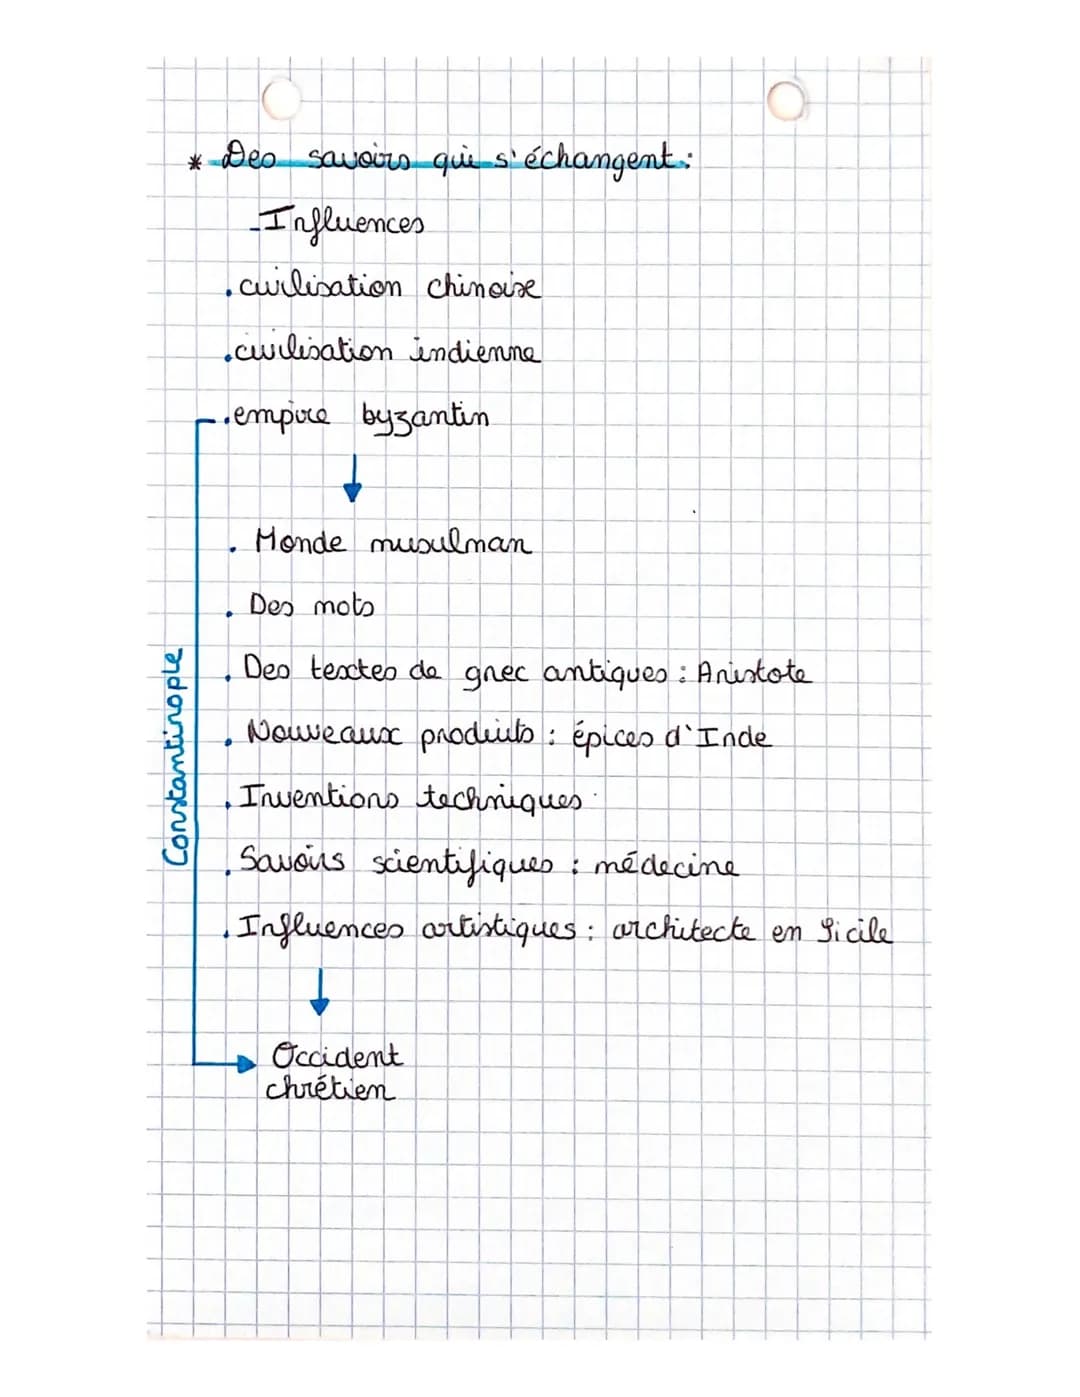 * Des savoirs qui s'échangent :
-Influences
.civilisation chinoise
.civilisation indienne
.empire byzantin
. Monde musulman
. Des mots
. Des textes de grec antiques : Aristote
. Nouveaux produits : épices d'Inde
. Inventions techniques
. Savoirs scientifiques : médecine
. Influences artistiques : architecte en Sicile
Constantinople
Occident
chrétien